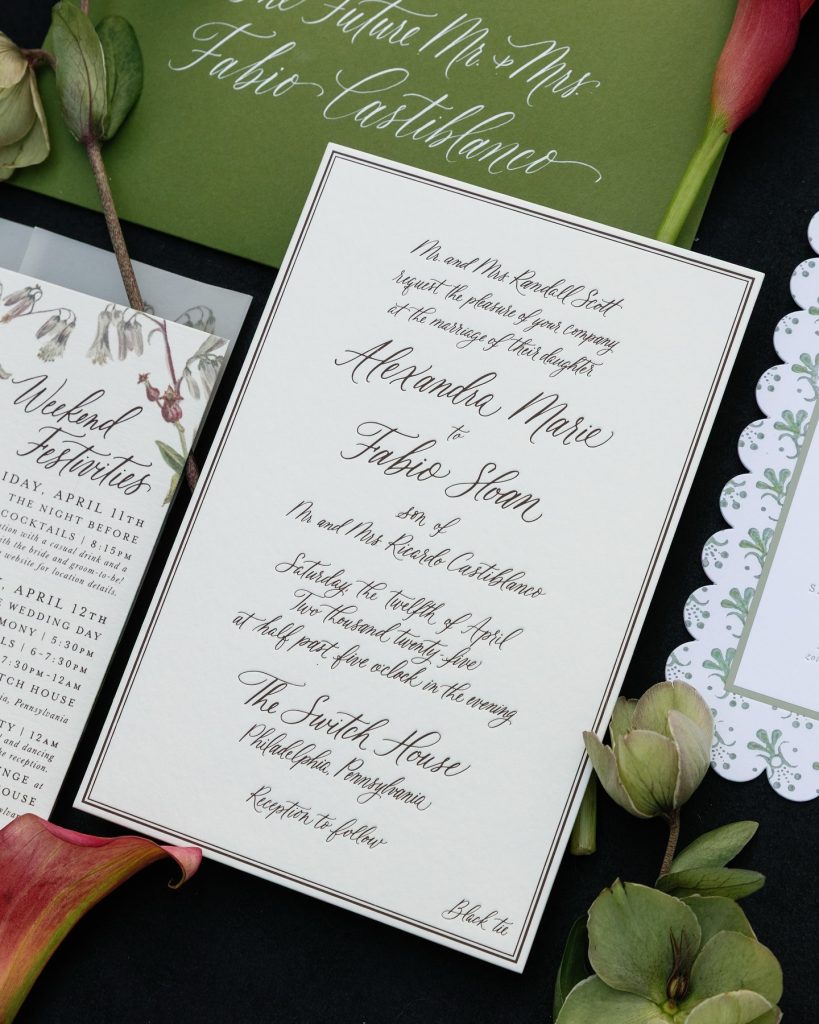 The Future Mr. & Mrs.
Fabio Castiblanco
Mr. and Mrs Randall Scott
request the pleasure of your company
at the marriage of their daughter
Alexandra Marie
to
Fabio Sloan
son of
Mr and Mrs Ricardo Castiblanco
Saturday, the twelfth of April
Two thousand twenty-five
at half past five oclock in the evening
The Switch House
Philadelphia, Pennsylvania
Reception to follow
Black tie
Weekend
Festivities
RIDAY, APRIL 11TH
THE NIGHT BEFORE
COCKTAILS | 8:15PM
with a casual drink and a
with the bride and groom-to-be!
website for location details.
APRIL 12TH
WEDDING DAY
MONY | 5:30PM
LS | 6-7:30PM
7:30PM-12AM
TCH HOUSE
Pennsylvania
TY | 12AM
and dancing
the reception.
NGE at
HOUSE